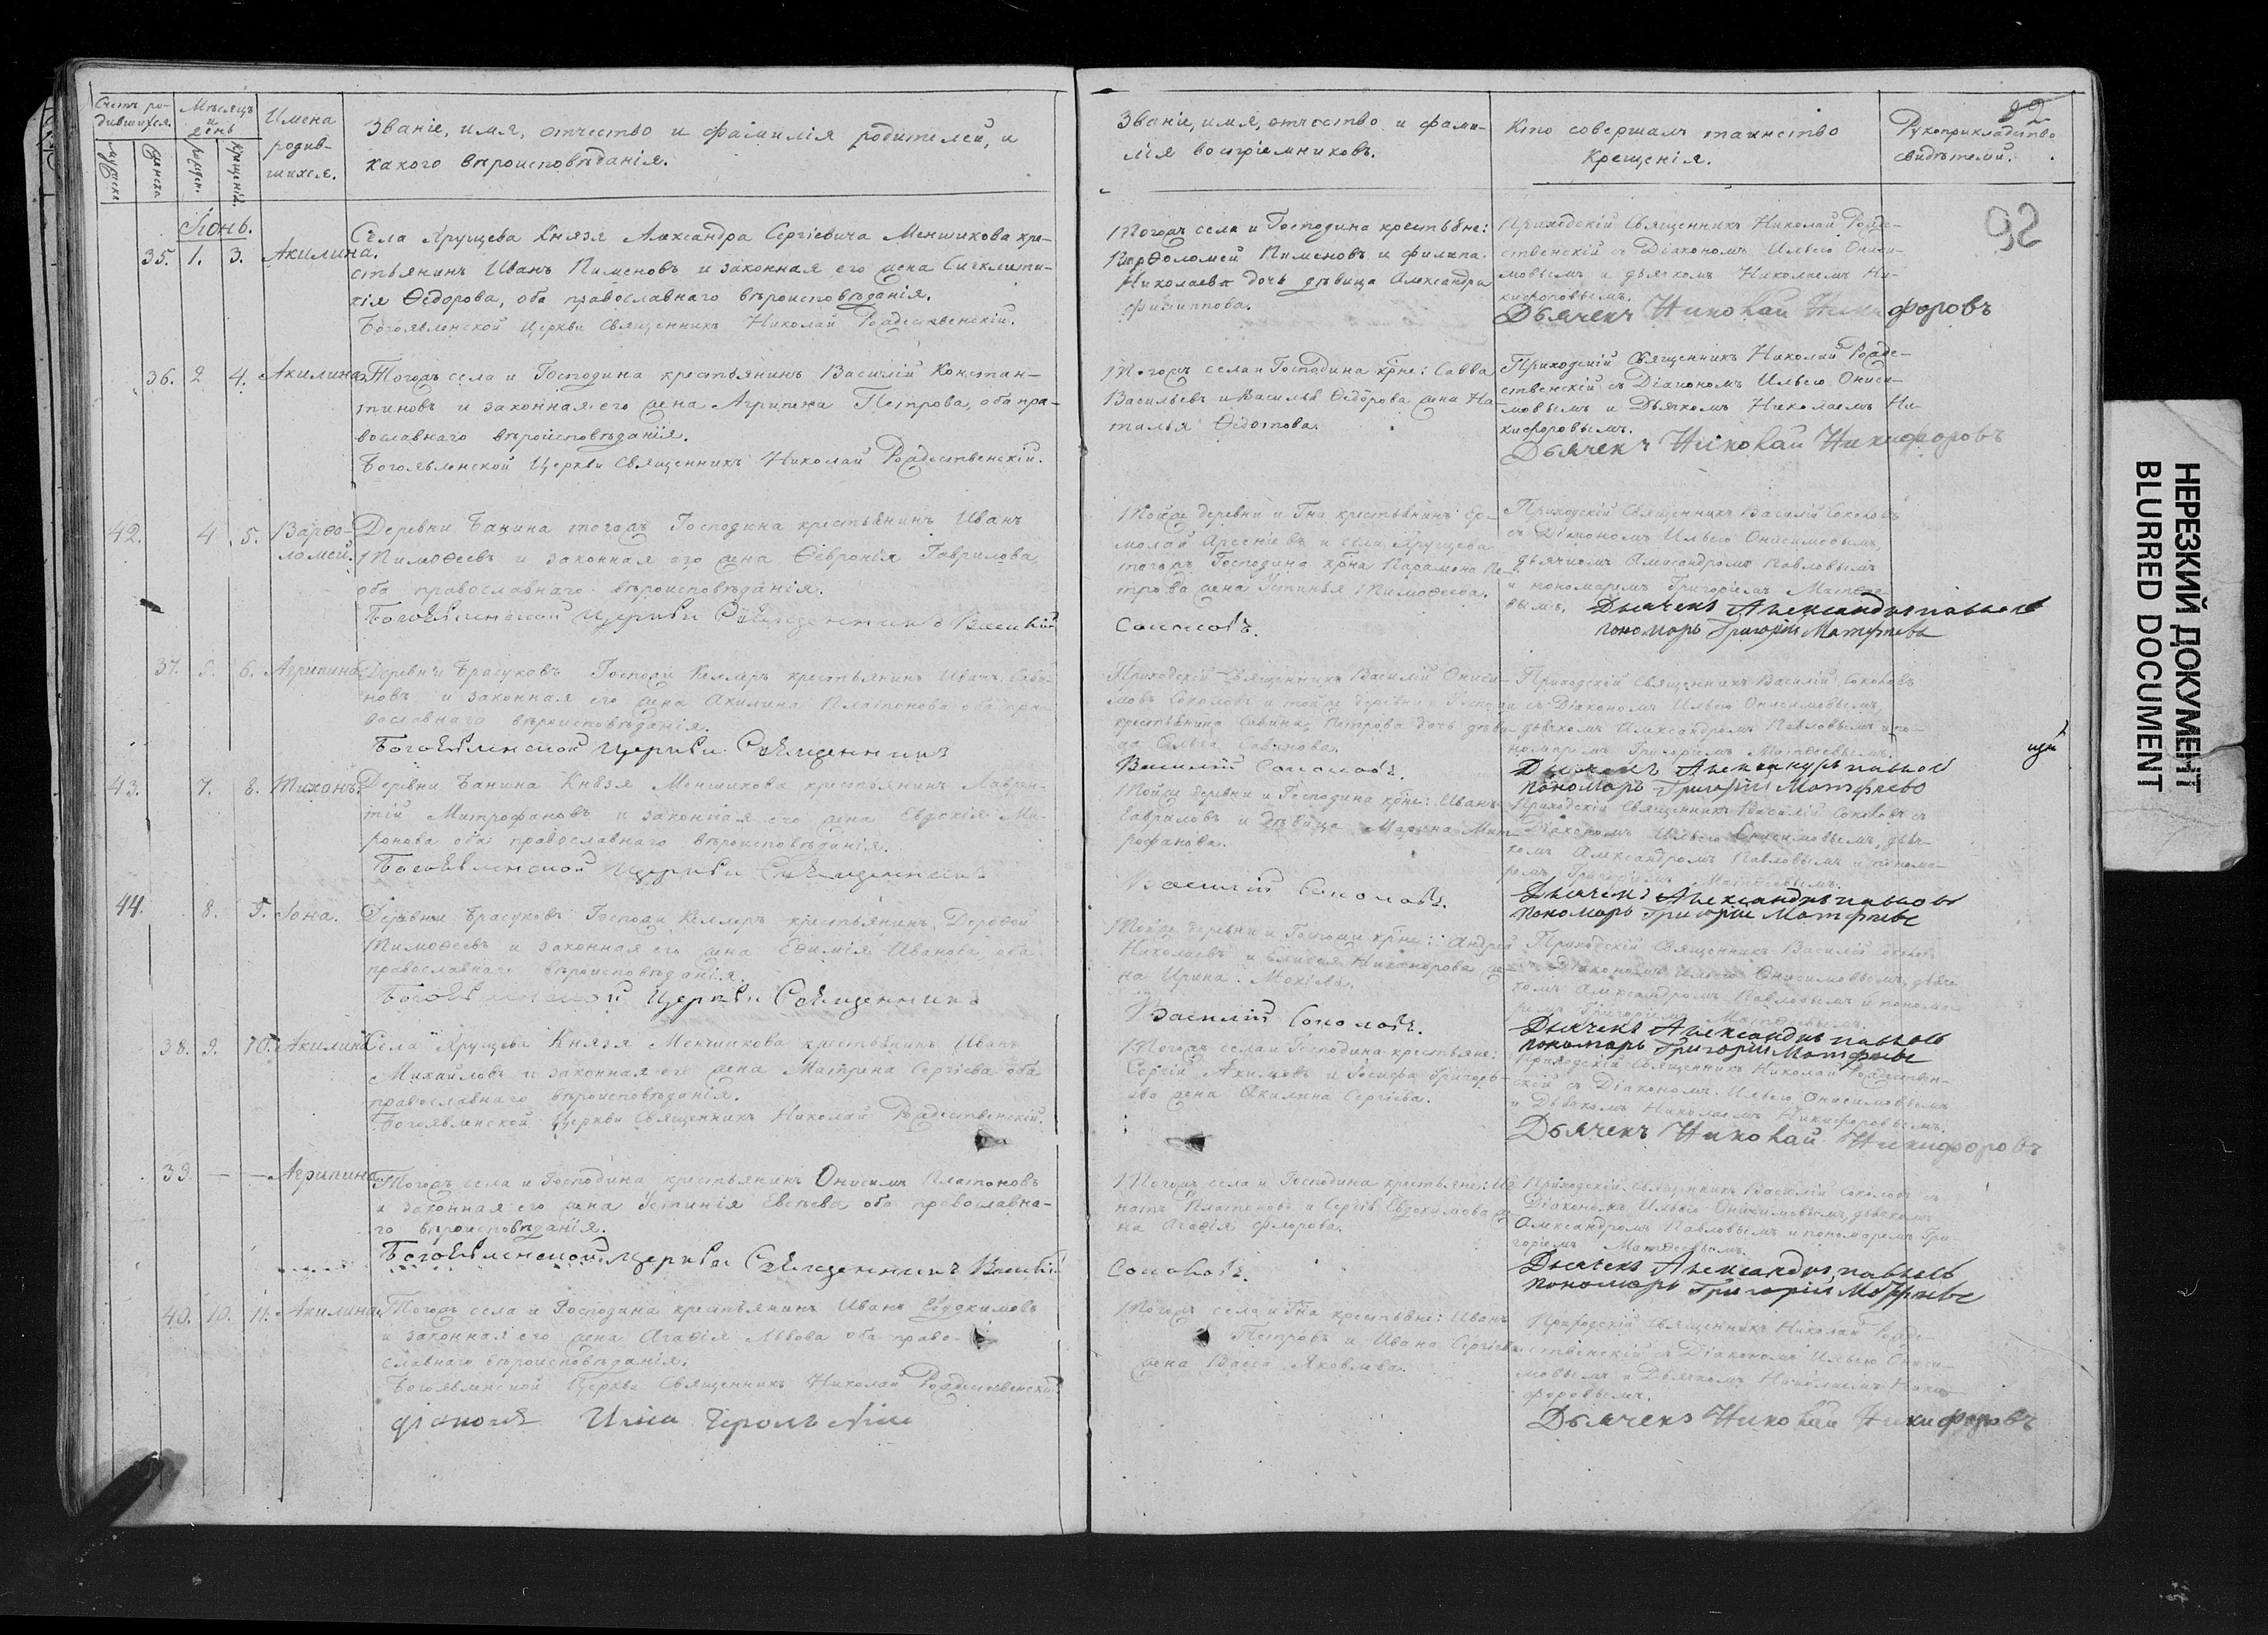 Счетъ ро-
дившихся.
мужска
женска
Мѣсяцъ
и
день
рожден.
крещенія.
Имена
родив-
шихся.
Званіе, имя, отчество и фамилія родителей, и
какого вѣроисповѣданія.
Званіе, имя, отчество и фами-
лія воспріемниковъ.
Кто совершалъ таинство
крещенія.
Рукоприкладство
свидѣтелей.
92
92
Іюнь.
35. 1. 3. Акилина.
Села Хрущева Князя Александра Сергіевича Меншикова кре-
стьянинъ Иванъ Пименовъ и законная его жена Сигклити-
кія Ѳедорова, оба православнаго вѣроисповѣданія.
Богоявленской Церкви Священникъ Николай Рождественскій.
Тогожъ села и Господина крестьяне:
Варѳоломей Пименовъ и Филипа
Николаева дочь дѣвица Александра
Филиппова.
Приходскій Священникъ Николай Рожде-
ственскій съ Діакономъ ИльеюОниси-
мовымъ и дьячкомъ Николаемъ Ни-
кифоровымъ.
Дьячекъ Николай Никифоровъ
36. 2 4. Акилина
Тогожъ села и Господина крестьянинъ Василій Констан-
тиновъ и законная его жена Агрипена Петрова, оба пра-
вославнаго вѣроисповѣданія.
Богоявленской Церкви Священникъ Николай Рождественскій.
Тогожъ села и Господина крне: Савва
Васильевъ и Василья Ѳедорова жена На-
талья Ѳедотова.
Приходскій Священникъ Николай Рожде-
ственскій съ Діакономъ Ильею Ониси-
мовымъ и Дьячкомъ Николаемъ Ни-
кифоровымъ.
Дьячекъ Николай Никифоровъ
42. 4 5. Варѳо-
ломей.
Деревни Банина тогожъ Господина крестьянинъ Иванъ
Тимоѳеевъ и законная его жена Ѳевронія Гаврилова,
оба православнаго вѣроисповѣданія.
Богоявленской Церкви Священникъ Василій
Тойже деревни и Гна крестьянинъ Ер-
молай Арсеніевъ и села Хрущева
тогожъ Господина крна Парамона Пе-
трова жена Устинья Тимоѳеева.
Соколовъ.
Приходскій Священникъ Василій Соколовъ
съ Діакономъ Ильею Онисимовымъ,
дьячкомъ Александромъ Павловымъ
и пономаремъ Григоріемъ Матвее-
вымъ.
Дьячекъ Александръ Павловъ
пономарь Григорій Матфѣевъ
37. 5. 6. Агрипина
Деревни Брасуковъ Господи Келлеръ крестьянинъ Иванъ Сави-
новъ и законная его жена Акилина Платонова оба пра-
вославнаго вѣроисповѣданія.
Богоявленской Церкви Священникъ
Приходскій Священникъ Василій Ониси-
мовъ Соколовъ и тойже деревни и Господи
крестьянина Савина Петрова дочь дѣви-
ца Ольга Савинова.
Василій Соколовъ.
Приходскій Священникъ Василій Соколовъ
съ Діакономъ Ильею Онисимовымъ,
дьячкомъ Александромъ Павловымъ и по-
номаремъ Григоріемъ Матвеевымъ.
Дьячекъ Александръ Павловъ
пономарь Григорій Матфѣевъ
43. 7. 8. Тихонъ.
Деревни Банина Князя Меншикова крестьянинъ Лаврен-
тій Митрофановъ и законная его жена Евдокія Ми-
ронова оба православнаго вѣроисповѣданія.
Богоявленской Церкви Священникъ
Тойже деревни и Господина крне: Иванъ
Гавриловъ и дѣвица Марина Мит-
рофанова.
Василій Соколовъ.
Приходскій Священникъ Василій Соколовъ съ
Діакономъ Ильею Онисимовымъ, дьяч-
комъ Александромъ Павловымъ и понома-
ремъ Григоріемъ Матвеевымъ.
Дьячекъ Александръ Павловъ
пономарь Григорій Матфѣевъ
44. 8. 9. Іона.
Деревни Брасуковъ Господи Келлеръ крестьянинъ Дороѳей
Тимоѳеевъ и законная его жена Евѳимія Иванова, оба
православнаго вѣроисповѣданія.
Богоявленской Церкви Священникъ
Тойже деревни и Господи крне: Андрей
Николаевъ и Никонорова же-
на Ирина Мокіева.
Василій Соколовъ.
Приходскій Священникъ Василій Соколовъ
съ Діакономъ Ильею Онисимовымъ, дьяч-
комъ Александромъ Павловымъ и понома-
ремъ Григоріемъ Матвеевымъ.
Дьячекъ Александръ Павловъ
пономарь Григорій Матфѣевъ
38. 9. 10. Акилина
Села Хрущева Князя Меншикова крестьянинъ Иванъ
Михайловъ и законная его жена Матрена Сергіева оба
православнаго вѣроисповѣданія.
Богоявленской Церкви Священникъ Николай Рождественскій.
Тогожъ села и Господина крестьяне:
Сергій Акимовъ и Іосифа Григорь-
ева жена Акилина Сергіева.
Приходскій Священникъ Николай Рождествен-
скій съ Діакономъ Ильею Онисимовымъ
и Дьячкомъ Николаемъ Никифоровымъ.
Дьячекъ Николай Никифоровъ
39. — — Агрипина
Тогожъ села и Господина крестьянинъ Онисимъ Платоновъ
и законная его жена Устинія Евсеева оба православна-
го вѣроисповѣданія.
Богоявленской Церкви Священникъ Василій
Тогожъ села и Господина крестьяне: Иг-
натъ Платоновъ и Сергія Евдокимова же-
на Агафія Флорова.
Соколовъ.
Приходскій Священникъ Василій Соколовъ съ
Діакономъ Ильею Онисимовымъ, дьячкомъ
Александромъ Павловымъ и пономаремъ Гри-
горіемъ Матвеевымъ.
Дьячекъ Александръ Павловъ
пономарь Григорій Матфѣевъ
40. 10. 11. Акилина
Тогожъ села и Господина крестьянинъ Иванъ Евдокимовъ
и законная его жена Агафія Львова оба право-
славнаго вѣроисповѣданія.
Богоявленской Церкви Священникъ Николай Рождественскій
діаконъ Илиа
Тогожъ села и Гна крестьяне: Иванъ
Петровъ и Ивана Сергіева
жена Васса Яковлева.
Приходскій Священникъ Николай Рожде-
ственскій съ Діакономъ Ильею Ониси-
мовымъ и Дьячкомъ Николаемъ Ники-
форовымъ.
Дьячекъ Николай Никифоровъ
НЕРЕЗКИЙ ДОКУМЕНТ
BLURRED DOCUMENT